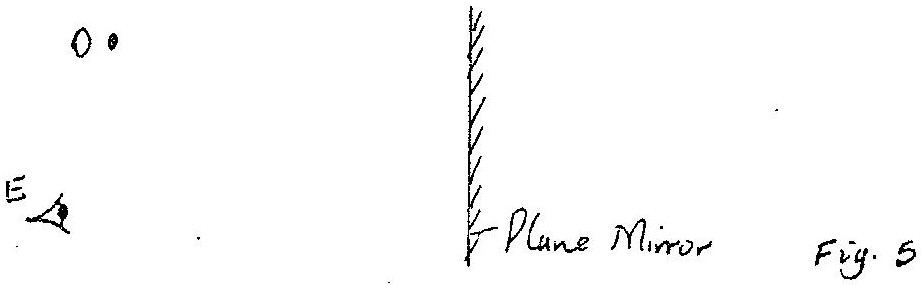 O
E
Plane Mirror
Fig. 5